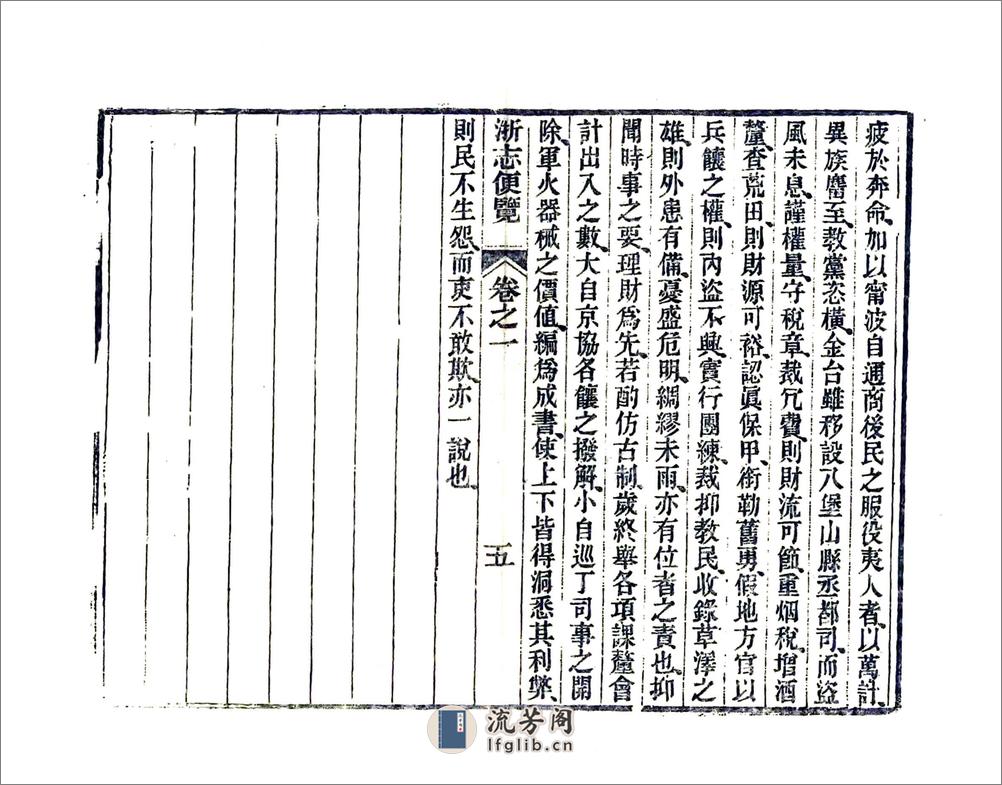 疲於奔命、加以甯波自通商後民之服役夷人者、以萬計、
異族麕至、教黨恣橫、金台雖移設八堡山縣丞都司、而盜
風未息、謹權量、守稅章、裁冗費、則財流可節、重烟稅、增酒
釐、查荒田、則財源可裕、認眞保甲、銜勒舊勇、假地方官以
兵饟之權、則內盜不興、實行團練、裁抑教民、收錄草澤之
雄、則外患有備、憂盛危明、綢繆未雨、亦有位者之責也、抑
聞時事之要、理財爲先、若酌仿古制、歲終舉各項課釐會
計出入之數、大自京協各饟之撥解、小自巡丁司事之開
除、軍火器械之價値、編爲成書、使上下皆得洞悉其利弊、
浙志便覽 卷之一 五
則民不生怨、而吏不敢欺、亦一說也、
流芳阁
lfglib.cn